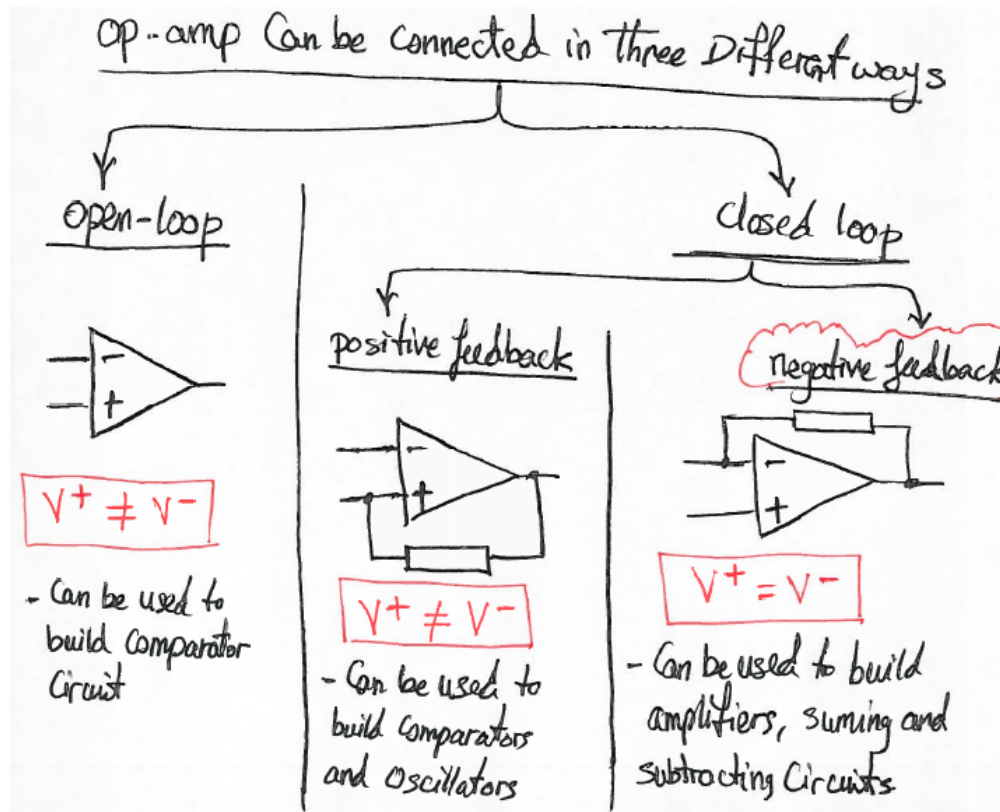 Op-amp Can be Connected in Three Different ways
open-loop
-
+
V+ ≠ V-
- Can be used to
build Comparator
Circuit
Closed loop
positive feedback
-
+
V+ ≠ V-
- Can be used to
build Comparators
and Oscillators
negative feedback
-
+
V+ = V-
- Can be used to build
amplifiers, suming and
subtracting Circuits